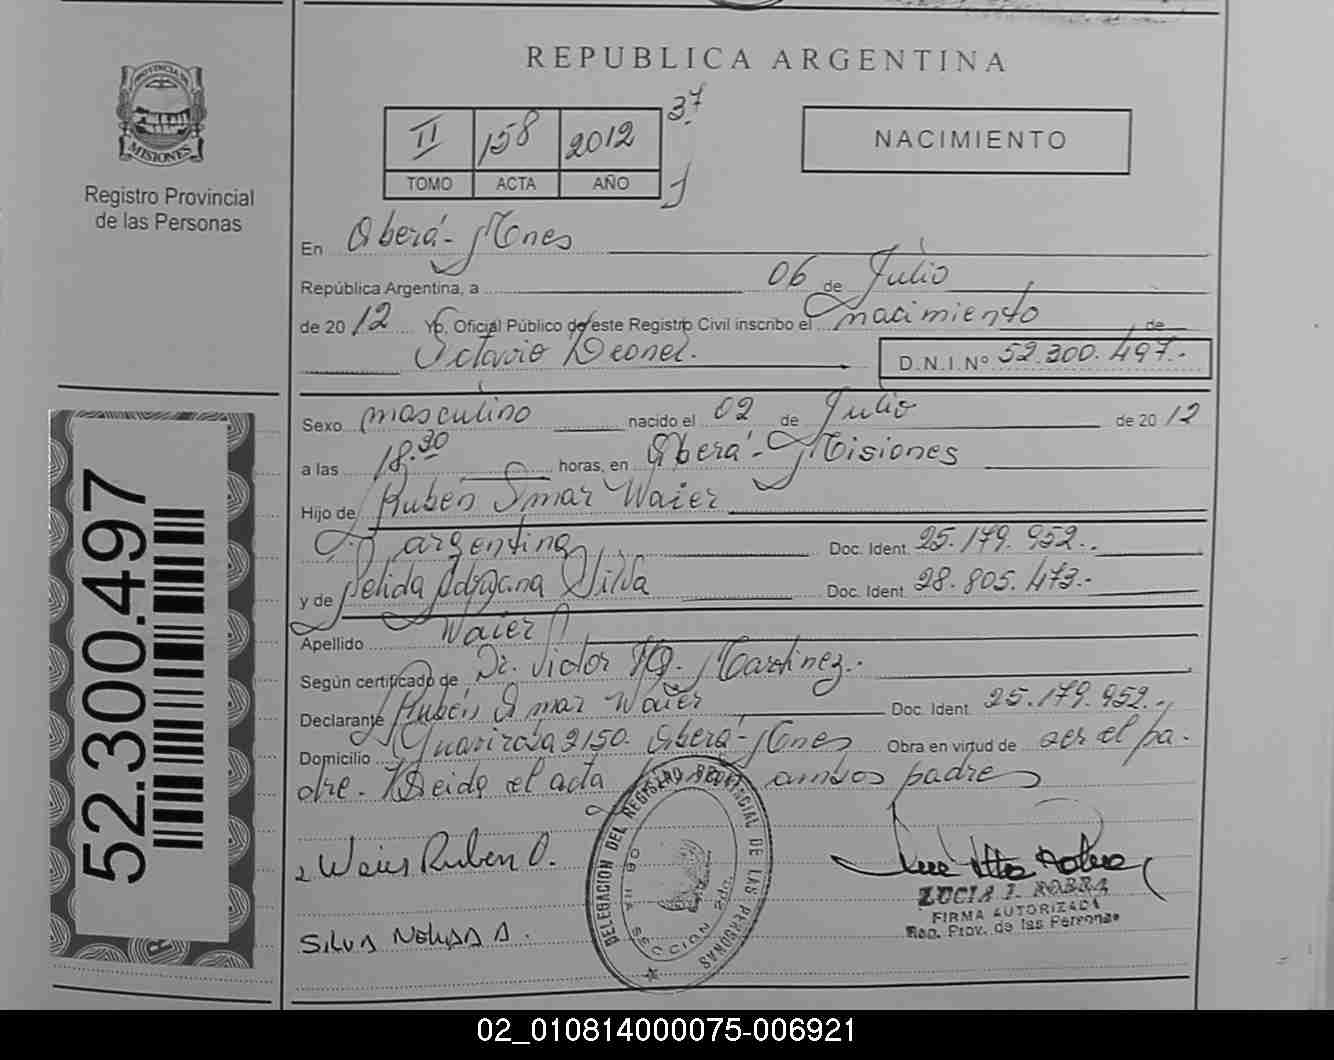 REPUBLICA ARGENTINA
PROVINCIA DE
MISIONES
Registro Provincial
de las Personas
II 158 2012 37
TOMO ACTA AÑO
NACIMIENTO
En Oberá - Mnes
República Argentina, a 06 de Julio
de 2012 Yo, Oficial Público de este Registro Civil inscribo el nacimiento de
Octavio Leonel. D.N.I. Nº 52.300.497.-
Sexo masculino nacido el 02 de Julio de 2012
a las 18.30 horas, en Oberá - Misiones
Hijo de Rubén Omar Waier
argentina Doc. Ident. 25.179.952.-
y de Nelida Silva Doc. Ident. 28.805.473.-
Apellido Waier
Según certificado de Dr. Victor Martinez.-
Declarante Rubén Omar Waier Doc. Ident. 25.179.952.-
Domicilio 2150. Oberá - Mnes Obra en virtud de ser el pa-
dre. Leida el acta ambos padres
Waier Ruben O.
Silva Nelida A.
DELEGACION DEL REGISTRO PROVINCIAL DE LAS PERSONAS
SECCION 2da.
LUCIA I. ROBRA
FIRMA AUTORIZADA
Reg. Prov. de las Personas
52.300.497
02_010814000075-006921